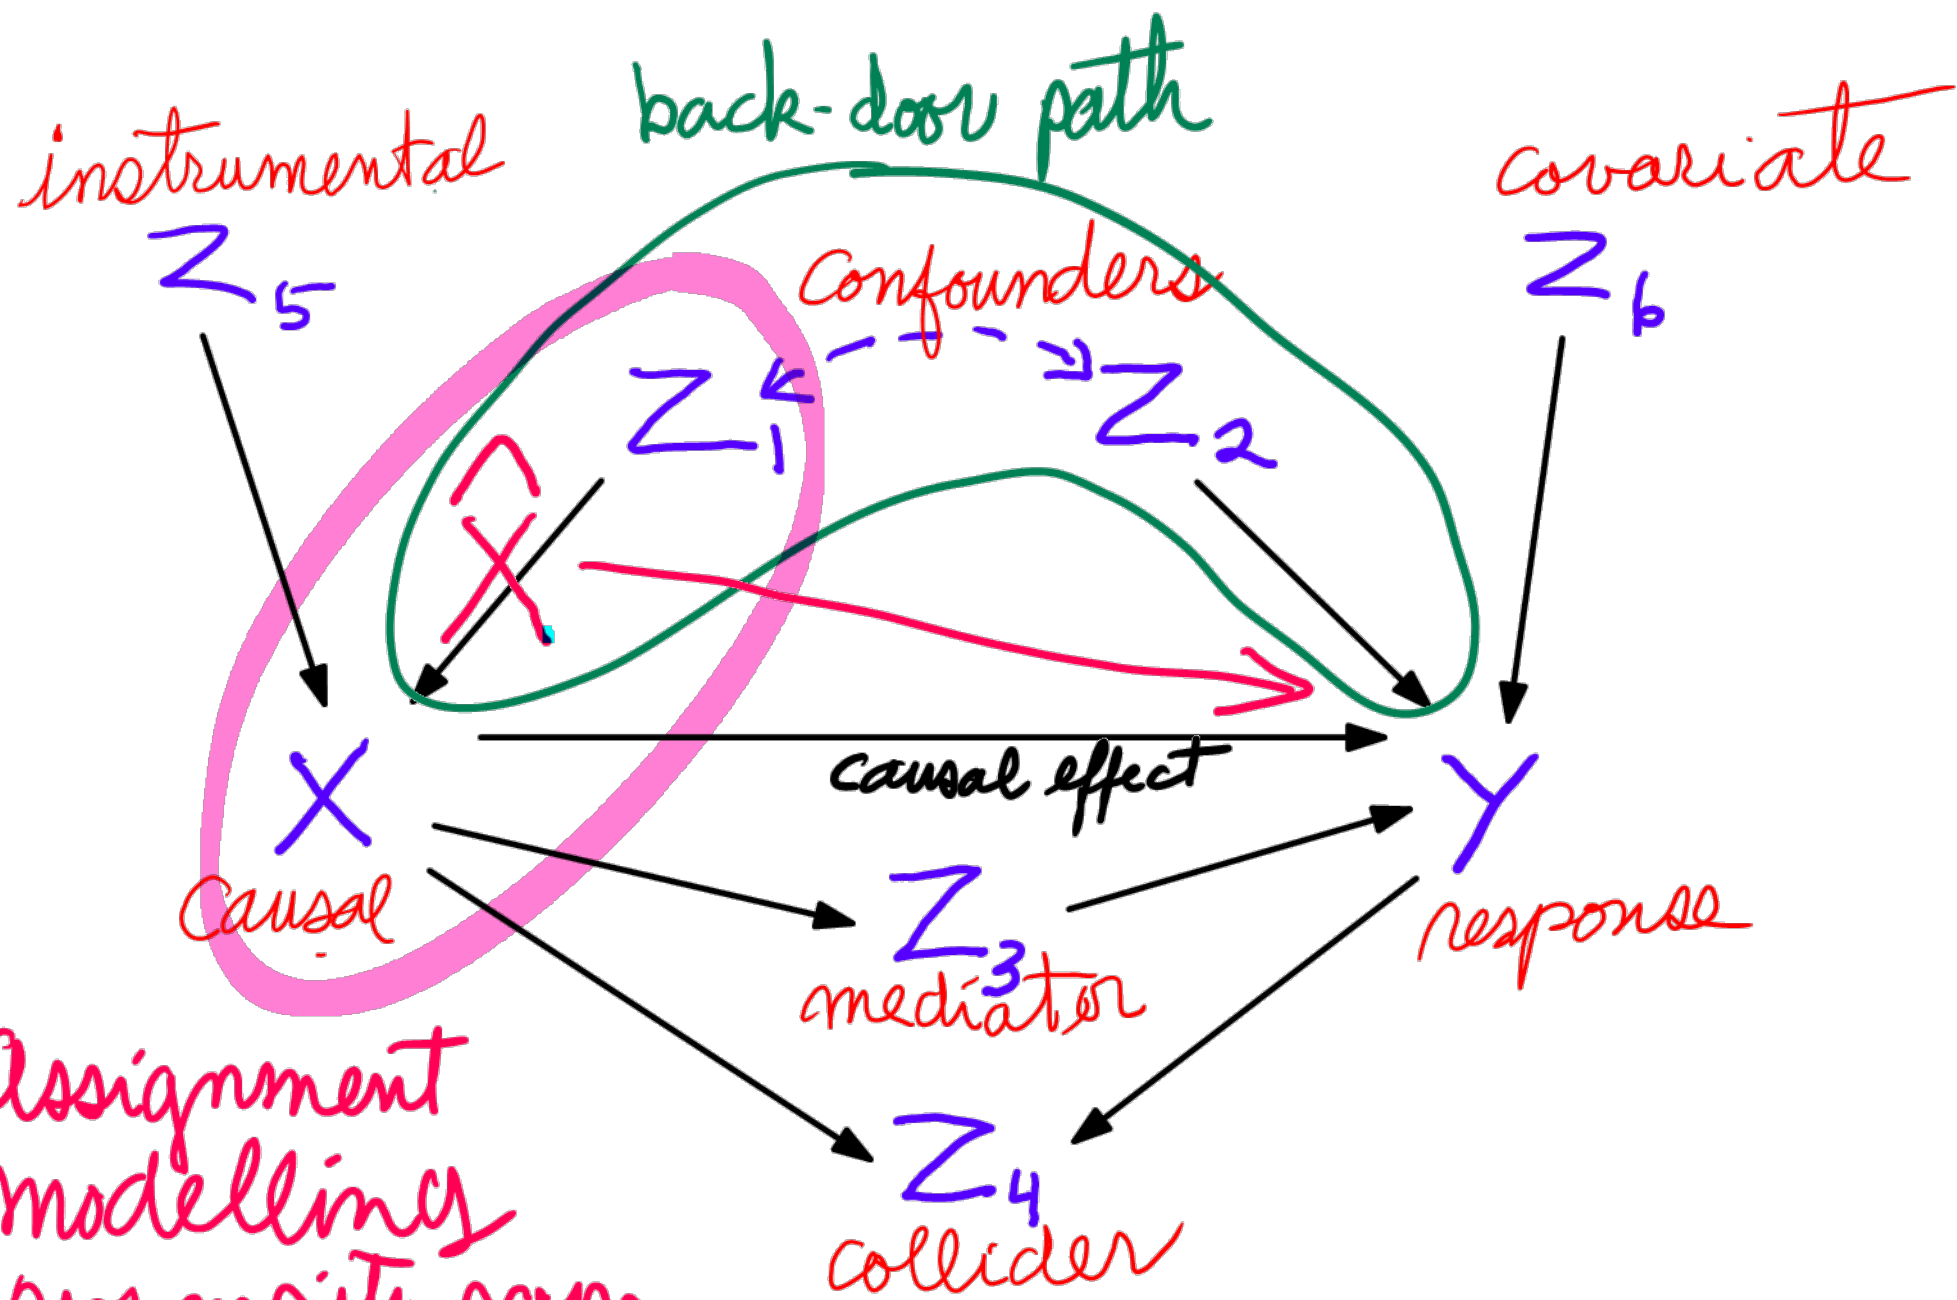 back-door path
instrumental
covariate
Z5
Z6
confounders
Z1
Z2
X̂
causal effect
X
Y
causal
Z3
response
mediator
Assignment
modelling
Z4
collider